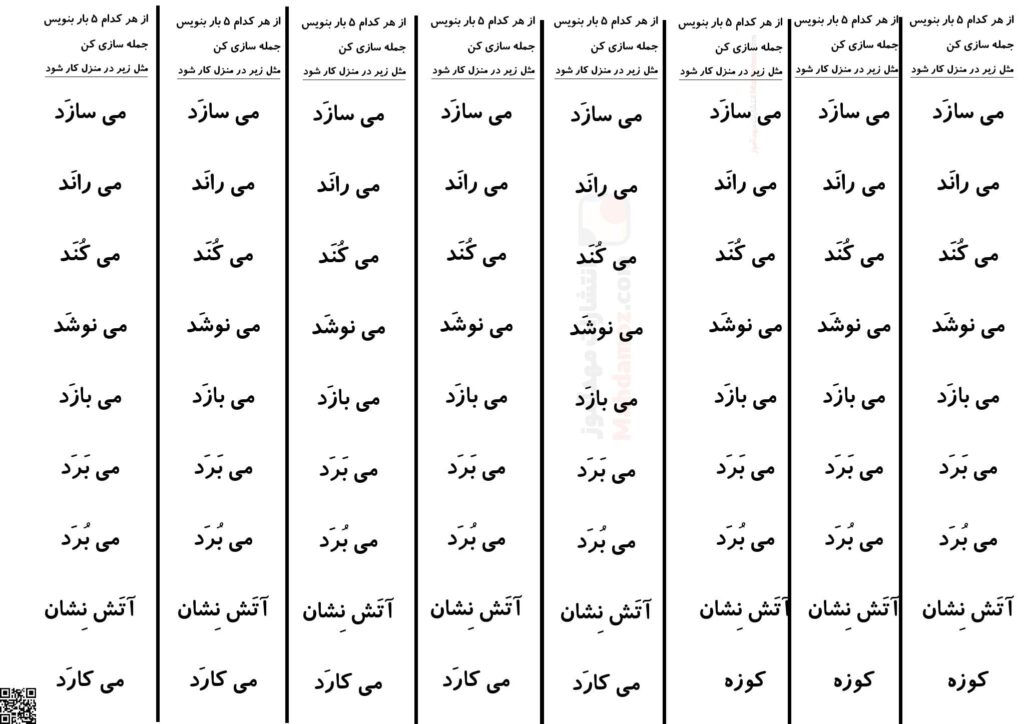 از هر کدام ۵ بار بنویس
جمله سازی کن
مثل زیر در منزل کار شود
می سازَد
می رانَد
می کُنَد
می نوشَد
می بازَد
می بَرَد
می بُرَد
آتَش نِشان
کوزه
از هر کدام ۵ بار بنویس
جمله سازی کن
مثل زیر در منزل کار شود
می سازَد
می رانَد
می کُنَد
می نوشَد
می بازَد
می بَرَد
می بُرَد
آتَش نِشان
کوزه
از هر کدام ۵ بار بنویس
جمله سازی کن
مثل زیر در منزل کار شود
می سازَد
می رانَد
می کُنَد
می نوشَد
می بازَد
می بَرَد
می بُرَد
آتَش نِشان
کوزه
از هر کدام ۵ بار بنویس
جمله سازی کن
مثل زیر در منزل کار شود
می سازَد
می رانَد
می کُنَد
می نوشَد
می بازَد
می بَرَد
می بُرَد
آتَش نِشان
می کارَد
از هر کدام ۵ بار بنویس
جمله سازی کن
مثل زیر در منزل کار شود
می سازَد
می رانَد
می کُنَد
می نوشَد
می بازَد
می بَرَد
می بُرَد
آتَش نِشان
می کارَد
از هر کدام ۵ بار بنویس
جمله سازی کن
مثل زیر در منزل کار شود
می سازَد
می رانَد
می کُنَد
می نوشَد
می بازَد
می بَرَد
می بُرَد
آتَش نِشان
می کارَد
از هر کدام ۵ بار بنویس
جمله سازی کن
مثل زیر در منزل کار شود
می سازَد
می رانَد
می کُنَد
می نوشَد
می بازَد
می بَرَد
می بُرَد
آتَش نِشان
می کارَد
از هر کدام ۵ بار بنویس
جمله سازی کن
مثل زیر در منزل کار شود
می سازَد
می رانَد
می کُنَد
می نوشَد
می بازَد
می بَرَد
می بُرَد
آتَش نِشان
می کارَد